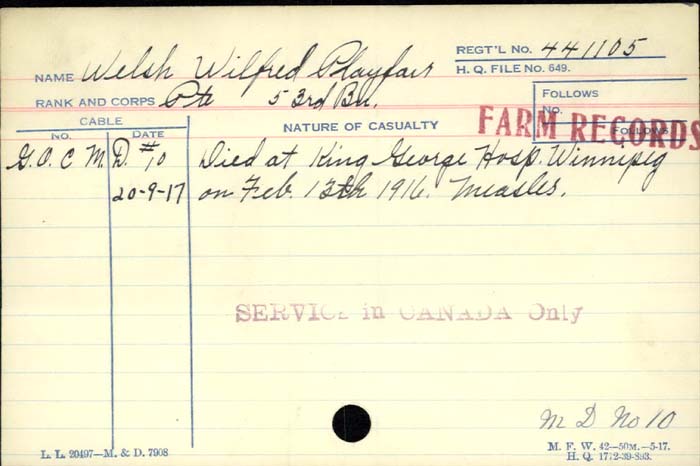 REGT'L NO. 441105
NAME Welsh Wilfred Playfair
H. Q. FILE NO. 649.
RANK AND CORPS Pte 53rd Bn.
FOLLOWS
NO.
CABLE
NATURE OF CASUALTY
FARM RECORDS
FOLLOWS
NO. DATE
G.O.C M.D. #10 Died at King George Hosp. Winnipeg
20-9-17 on Feb. 13th 1916. Measles.
SERVICE in CANADA Only
M D No 10
L. L. 20497—M. & D. 7908
M. F. W. 42—50M.—5-17.
H. Q. 1772-39-893.